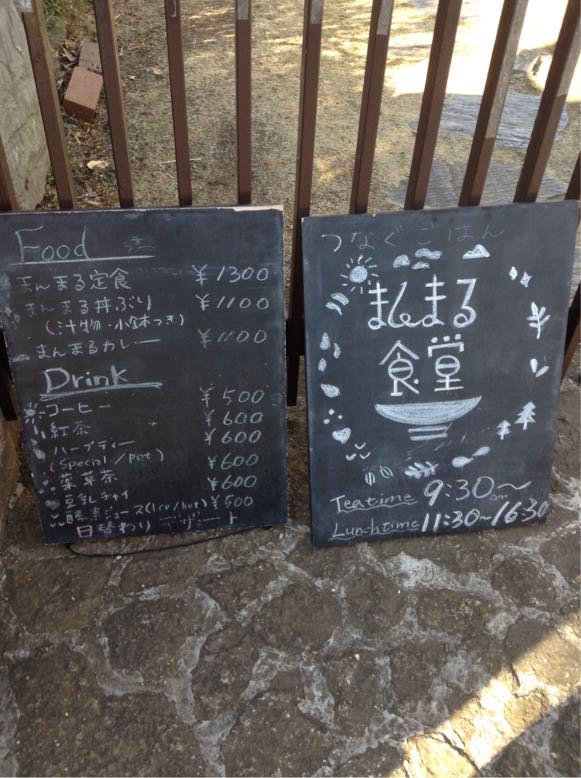 Food
まんまる定食 ￥1300
まんまる丼ぶり ￥1100
(汁物・小鉢つき)
まんまるカレー ￥1100
Drink
コーヒー ￥500
紅茶 ￥600
ハーブティー ￥600
(Special/pot)
薬草茶 ￥600
豆乳チャイ ￥600
酵素ジュース(Ice/hot) ￥500
日替わりデザート
つなぐごはん
まんまる
食堂
Teatime 9:30～am
Lunchtime 11:30～16:30